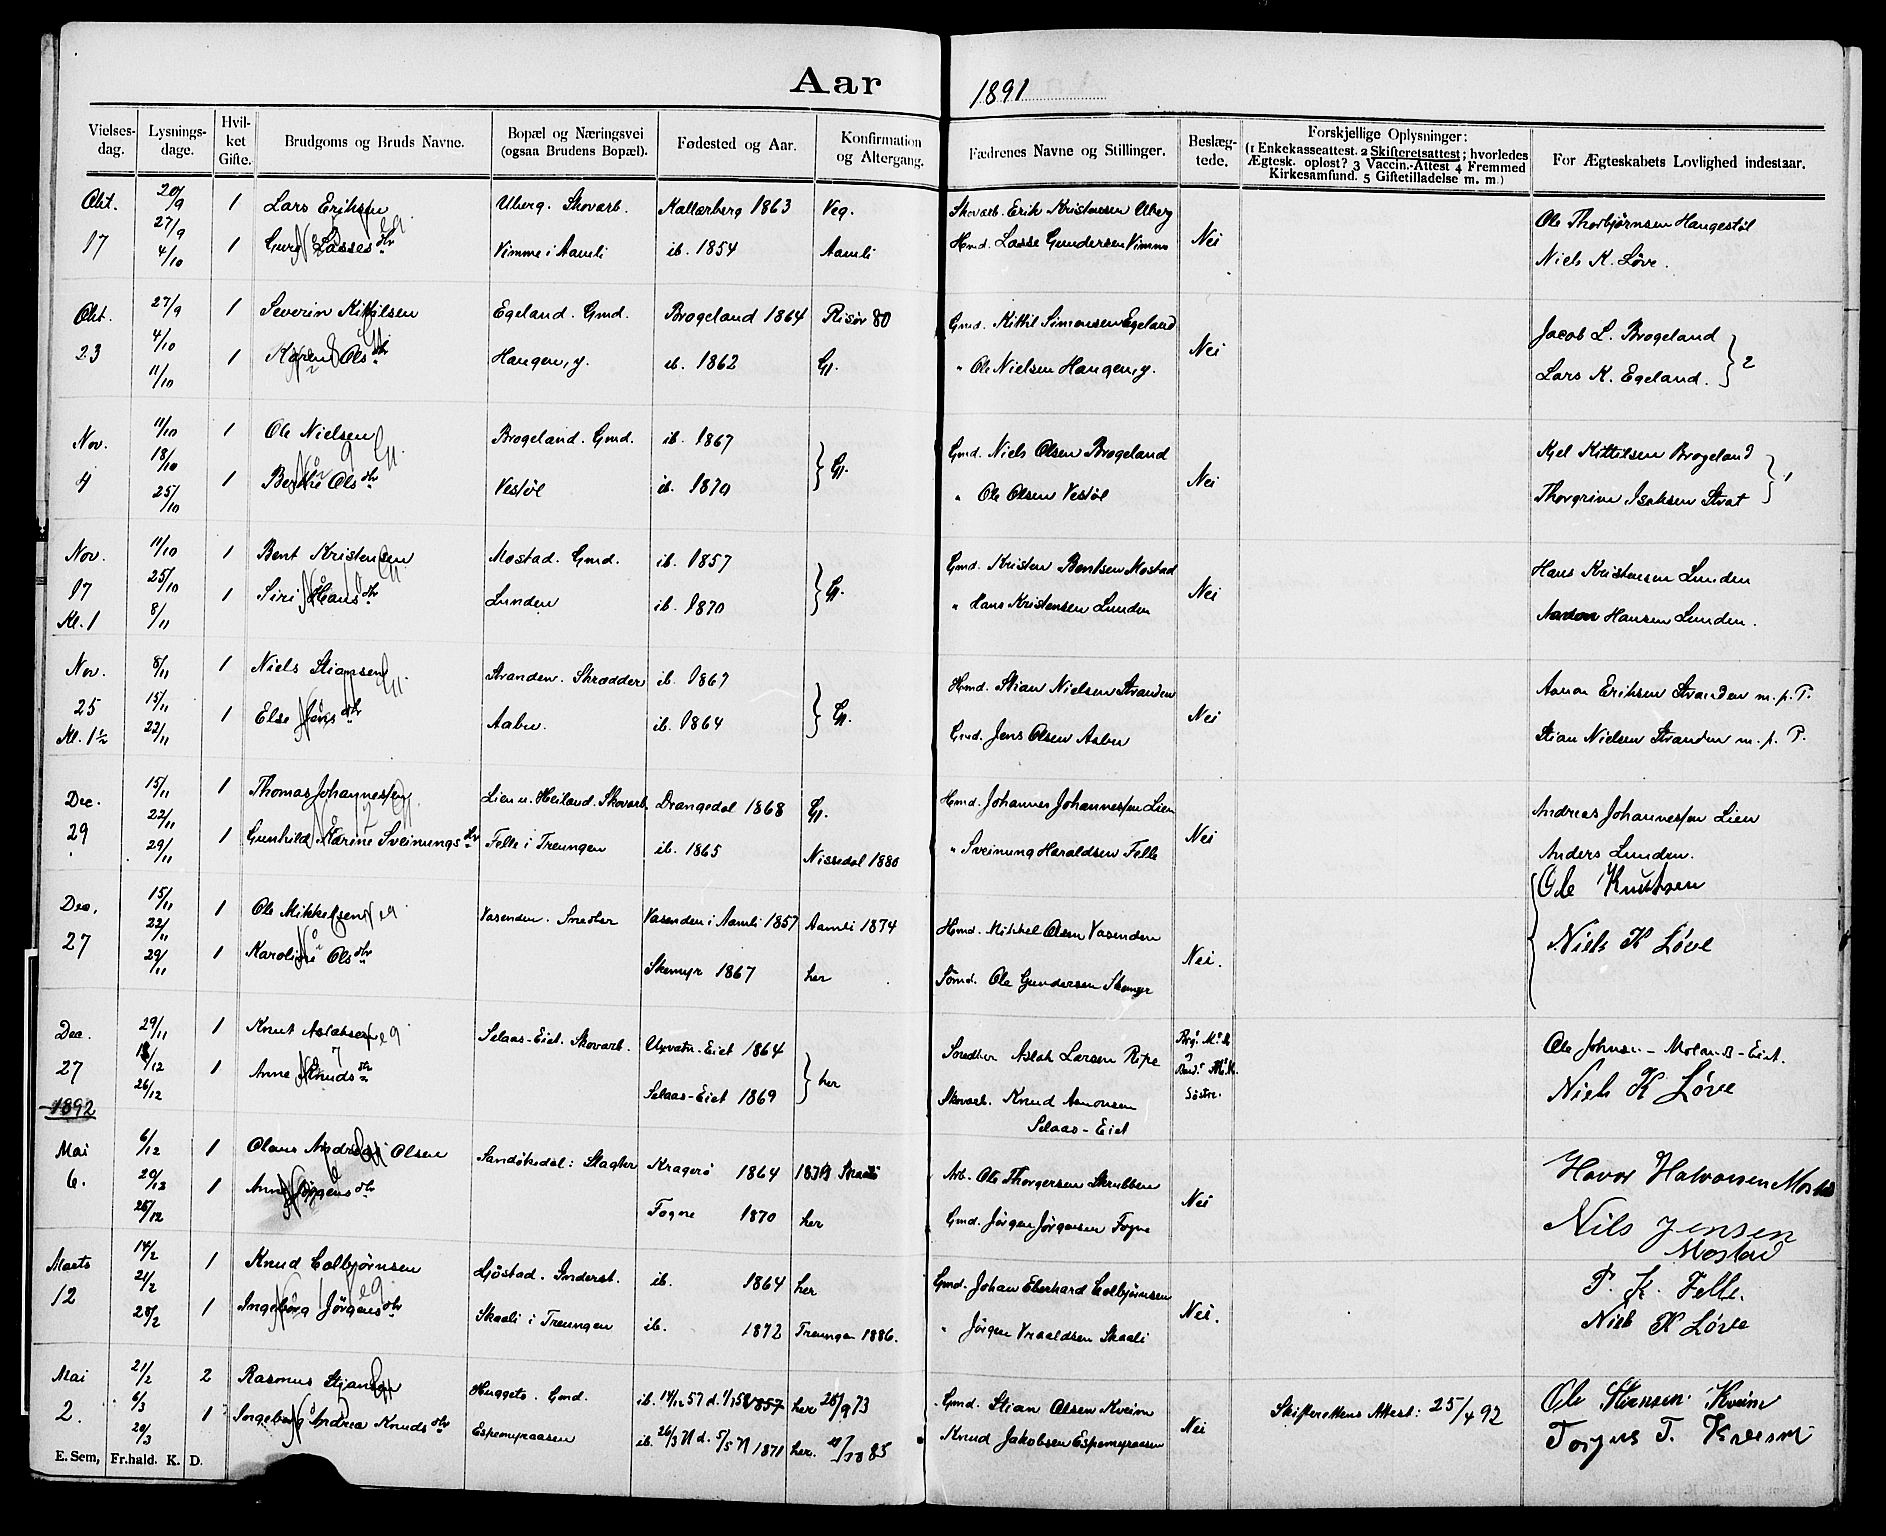 Aar 1891
Vielses-dag. Lysnings-dage. Hvil-ket Gifte. Brudgoms og Bruds Navne. Bopæl og Næringsvei (ogsaa Brudens Bopæl). Fødested og Aar. Konfirmation og Altergang. Fædrenes Navne og Stillinger. Beslæg-tede. Forskjellige Oplysninger: (1 Enkekasseattest. 2 Skifteretsattest; hvorledes Ægtesk. opløst? 3 Vaccin.-Attest 4 Fremmed Kirkesamfund. 5 Giftetilladelse m. m.) For Ægteskabets Lovlighed indestaar.
Okt. 20/9 1 Lars Eriksen Uberg. Skovarb. 1863 Veg. Skovarb. Erik Kristensen Uberg Ole Thorbjørnsen Haugestøl
27/9
17 4/10 1 Guro Lassesdtr Vimme i Aamli ib. 1854 Aamli Hmd. Lasse Gundersen Vimme Nei Niels K. Løve.
Okt. 27/9 1 Severin Kittilsen Egeland. Gmd. Brogeland 1864 Risør 80 Gmd. Kittil Simonsen Egeland Jacob L. Brogeland
4/10
23 11/10 1 Karen Olsdtr Haugen, y. ib. 1862 Gj. " Ole Nielsen Haugen, y. Nei Lars K. Egeland. } 2
Nov. 11/10 1 Ole Nielsen Brogeland. Gmd. ib. 1867 Gmd. Niels Olsen Brogeland Kjel Kittilsen Brogeland
18/10
4 25/10 1 Berthe Olsdtr Vestøl ib. 1870 } Gj. " Ole Olsen Vestøl Nei Thorgrim Isaksen Strat } 1
Nov. 11/10 1 Bent Kristensen Mostad. Gmd. ib. 1857 Gmd. Kristen Bentsen Mostad Hans Kristensen Lunden
17 25/10 1 Siri Hansdtr Lunden ib. 1870 } Gj. " Hans Kristensen Lunden Nei
Kl. 1 8/11 Hansen Lunden.
Nov. 8/11 1 Niels Stiansen Stranden. Skrædder ib. 1867 Hmd. Stian Nielsen Stranden Aanon Eriksen Stranden m. p. P.
25 15/11 1 Else Jensdtr Aabu. ib. 1864 } Gj. Gmd. Jens Olsen Aabu Nei
Kl. 1½ 22/11 Stian Nielsen Stranden m. p. P.
Dec. 15/11 1 Thomas Johannessen Lien u. Heiland. Skovarb. Drangedal 1868 Gj. Hmd. Johannes Johannessen Lien Andreas Johannessen Lien
22/11
29 29/11 1 Gunhild Karine Sveinungsdtr Felle i Treungen ib. 1865 Nissedal 1880 " Sveinung Haraldsen Felle Nei Anders Lunden.
Dec. 15/11 1 Ole Mikkelsen Vasenden. Snedker Vasenden i Aamli 1857 Aamli 1874 Hmd. Mikkel Olsen Vasenden Ole Knutsen
22/11
27 29/11 1 Karoline Olsdtr Skemyr 1867 her Ole Gundersen Skemyr Nei. Niels K Løve
Dec. 29/11 1 Knut Aslaksen Selaas-Eiet. Skovarb. Uxvatn-Eiet 1864 Snedker Aslak Larsen Ripe Ole Johnsen - Molands-Eiet.
27 /12 1 Anne Knudsdtr Selaas-Eiet 1869 } her Skovarb. Knud Aanonsen Søstre. Niels K Løve
26/12 Selaas-Eiet
1892
Mai 6/12 1 Olaus Andreas Olsen Sandøkedal: Slagter Kragerø 1864 Arb. Ole Thorgersen Skrubben Havor Halvorsen
6. 20/12 1 Anne Jørgensdtr Fogne 1870 her Gmd. Jørgen Jørgensen Fogne Nei Nils Jensen
26/12 Mostad
Marts 14/2 1 Knud Colbjørnsen Gjøstad. Inderst. ib. 1864 her Gmd. Johan Eberhard Colbjørnsen T. K. Felle.
21/2
12 28/2 1 Ingeborg Jørgensdtr Skaali i Treungen ib. 1872 Treungen 1886. " Jørgen Vraaldsen Skaali Nei. Niels K Løve
Mai 21/2 2 Rasmus Stiansen Huggets. Gmd. ib. 14/12 57 d. 1857 her 73 Gmd. Stian Olsen Kveim Skifterettens Attest: 25/4 92 Ole Stiensen Kveim
6/3
2. 20/3 1 Ingeborg Andrea Knudsdtr Espemyraasen ib. 26/3 71 d. 5/5 71 1871 her. 85 Knud Jakobsen Espemyraasen Nei Torjus T. Kveim
E. Sem, Fr.hald. K. D.